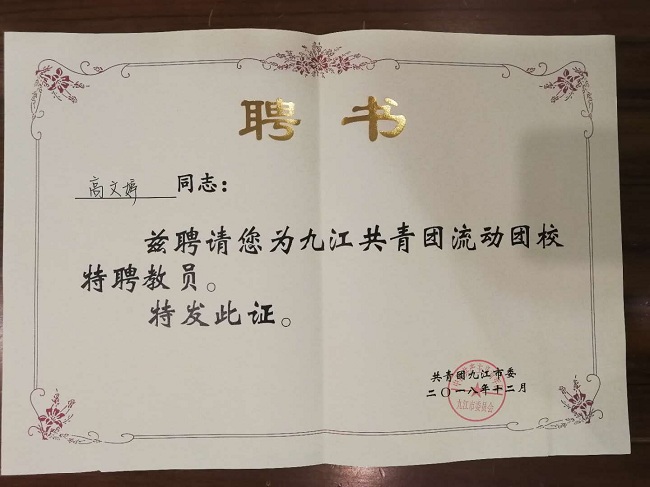 聘书
高文婷 同志：
兹聘请您为九江共青团流动团校
特聘教员。
特发此证。
共青团九江市委
二〇一八年十二月
九江市委员会